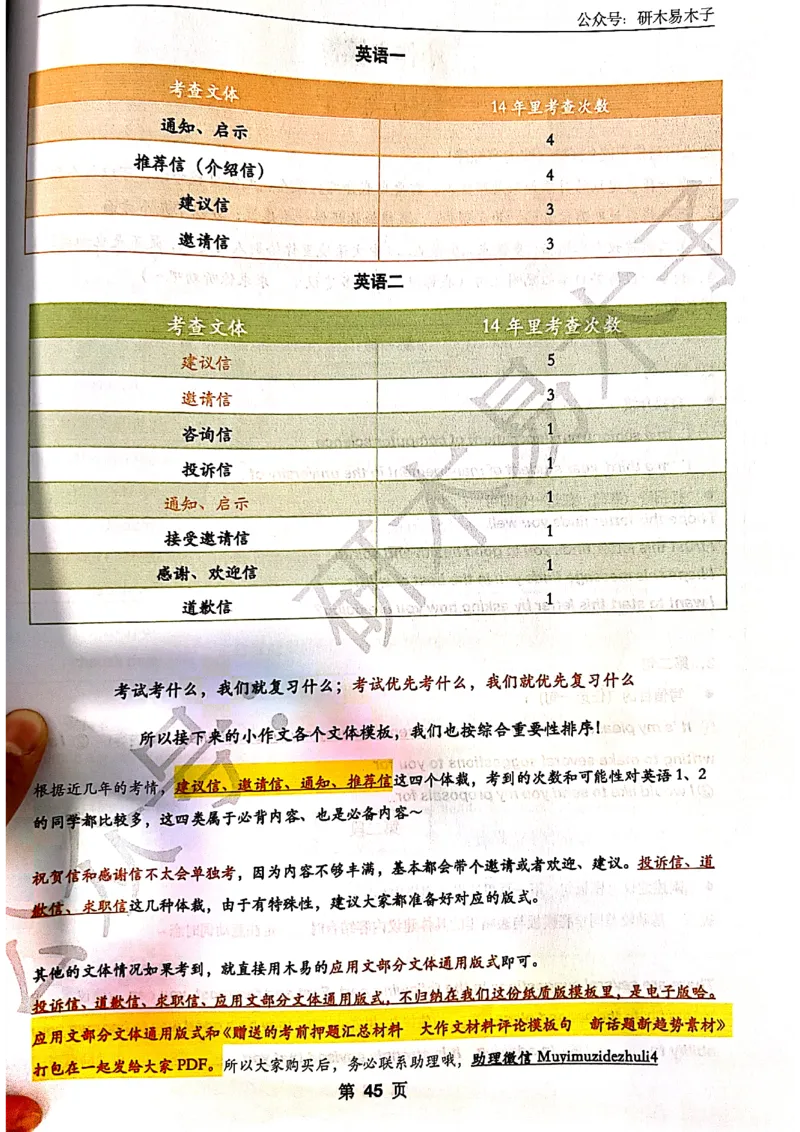 公众号：研木易木子
英语一
考查文体 14 年里考查次数
通知、启示 4
推荐信（介绍信） 4
建议信 3
邀请信 3
英语二
考查文体 14 年里考查次数
建议信 5
邀请信 3
咨询信 1
投诉信 1
通知、启示 1
接受邀请信 1
感谢、欢迎信 1
道歉信 1
考试考什么，我们就复习什么；考试优先考什么，我们就优先复习什么
所以接下来的小作文各个文体模板，我们也按综合重要性排序！
根据近几年的考情，建议信、邀请信、通知、推荐信这四个体裁，考到的次数和可能性对英语 1、2
的同学都比较多，这四类属于必背内容、也是必备内容～
祝贺信和感谢信不太会单独考，因为内容不够丰满，基本都会带个邀请或者欢迎、建议。投诉信、道
歉信、求职信这几种体裁，由于有特殊性，建议大家都准备好对应的版式。
其他的文体情况如果考到，就直接用木易的应用文部分文体通用版式即可。
投诉信、道歉信、求职信、应用文部分文体通用版式，不归纳在我们这份纸质版模板里，是电子版哈。
应用文部分文体通用版式和《赠送的考前押题汇总材料 大作文材料评论模板句 新话题新趋势素材》
打包在一起发给大家 PDF。所以大家购买后，务必联系助理哦，助理微信 Muyimuzidezhuli4
第 45 页
公众号：研木易木子